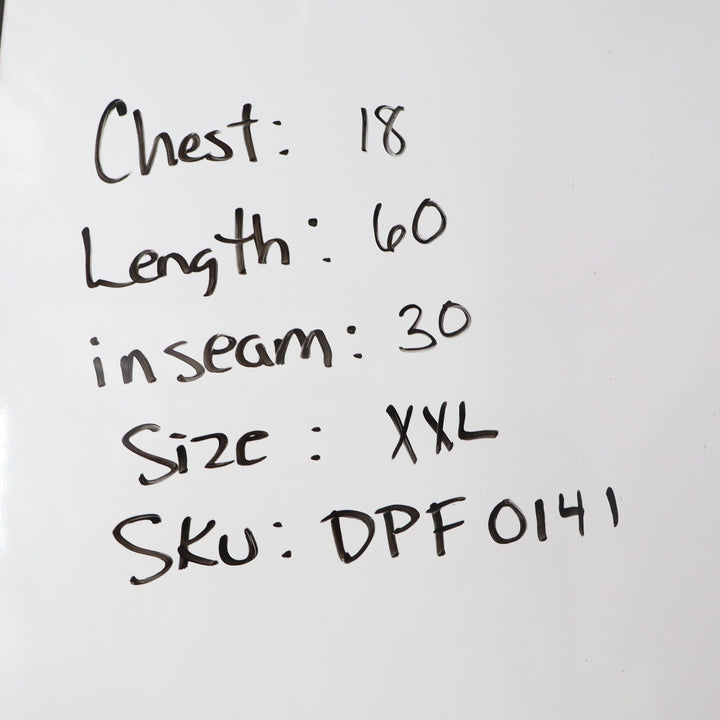 Chest: 18
Length: 60
inseam: 30
Size: XXL
SKU: DPF0141